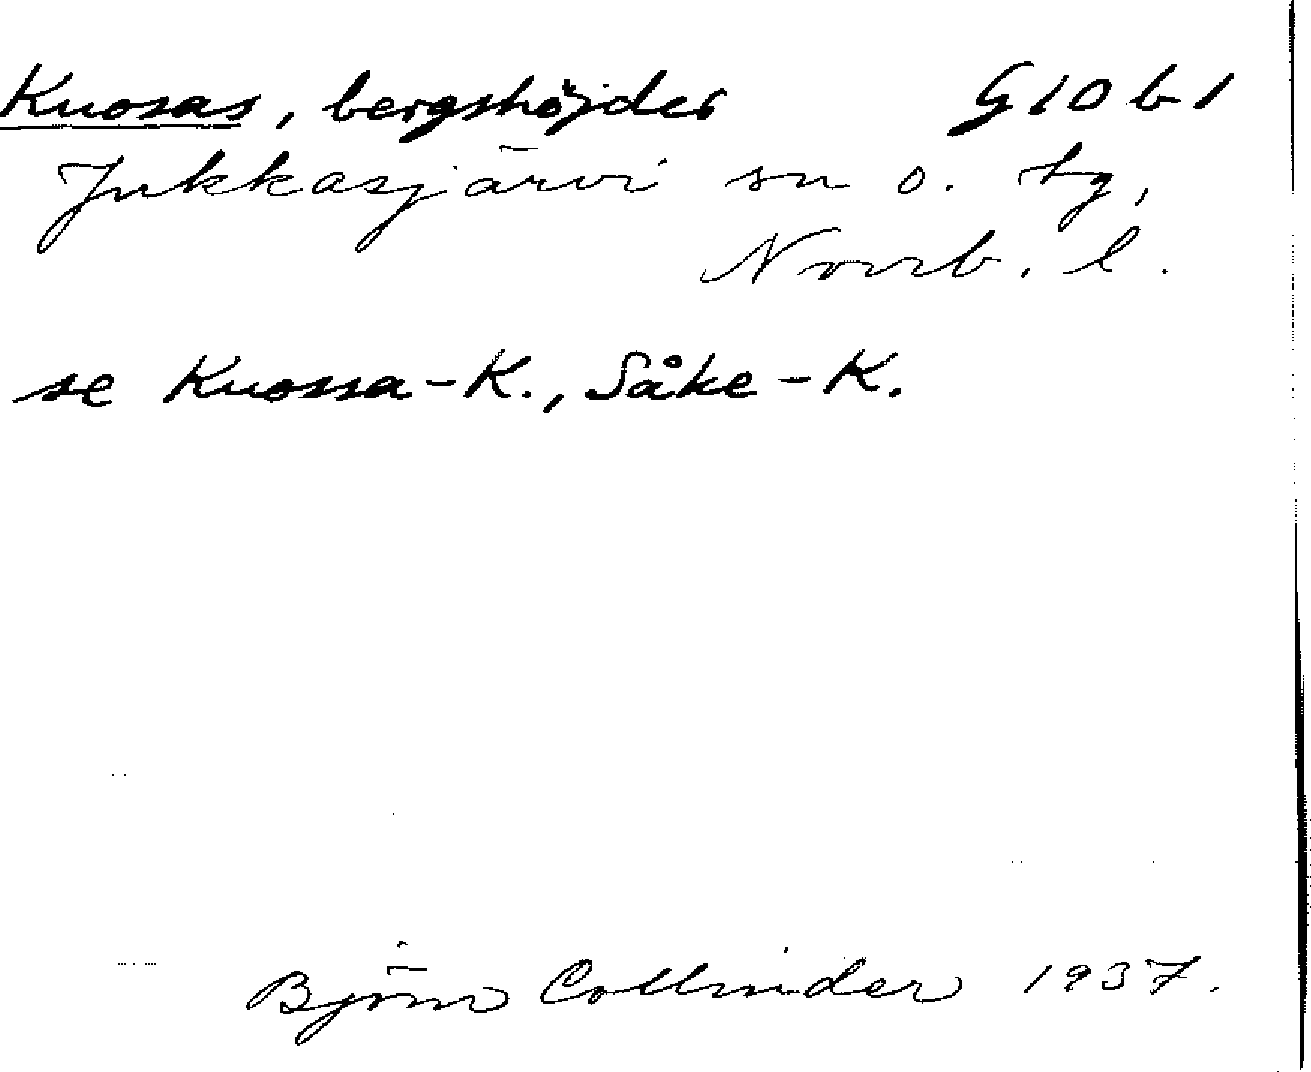 Kuosas, bergshöjder G10b1
Jukkasjärvi sn o. tg,
Norrb. l.
se Kuossa-K., Såke-K.
Björn Collinder 1937.